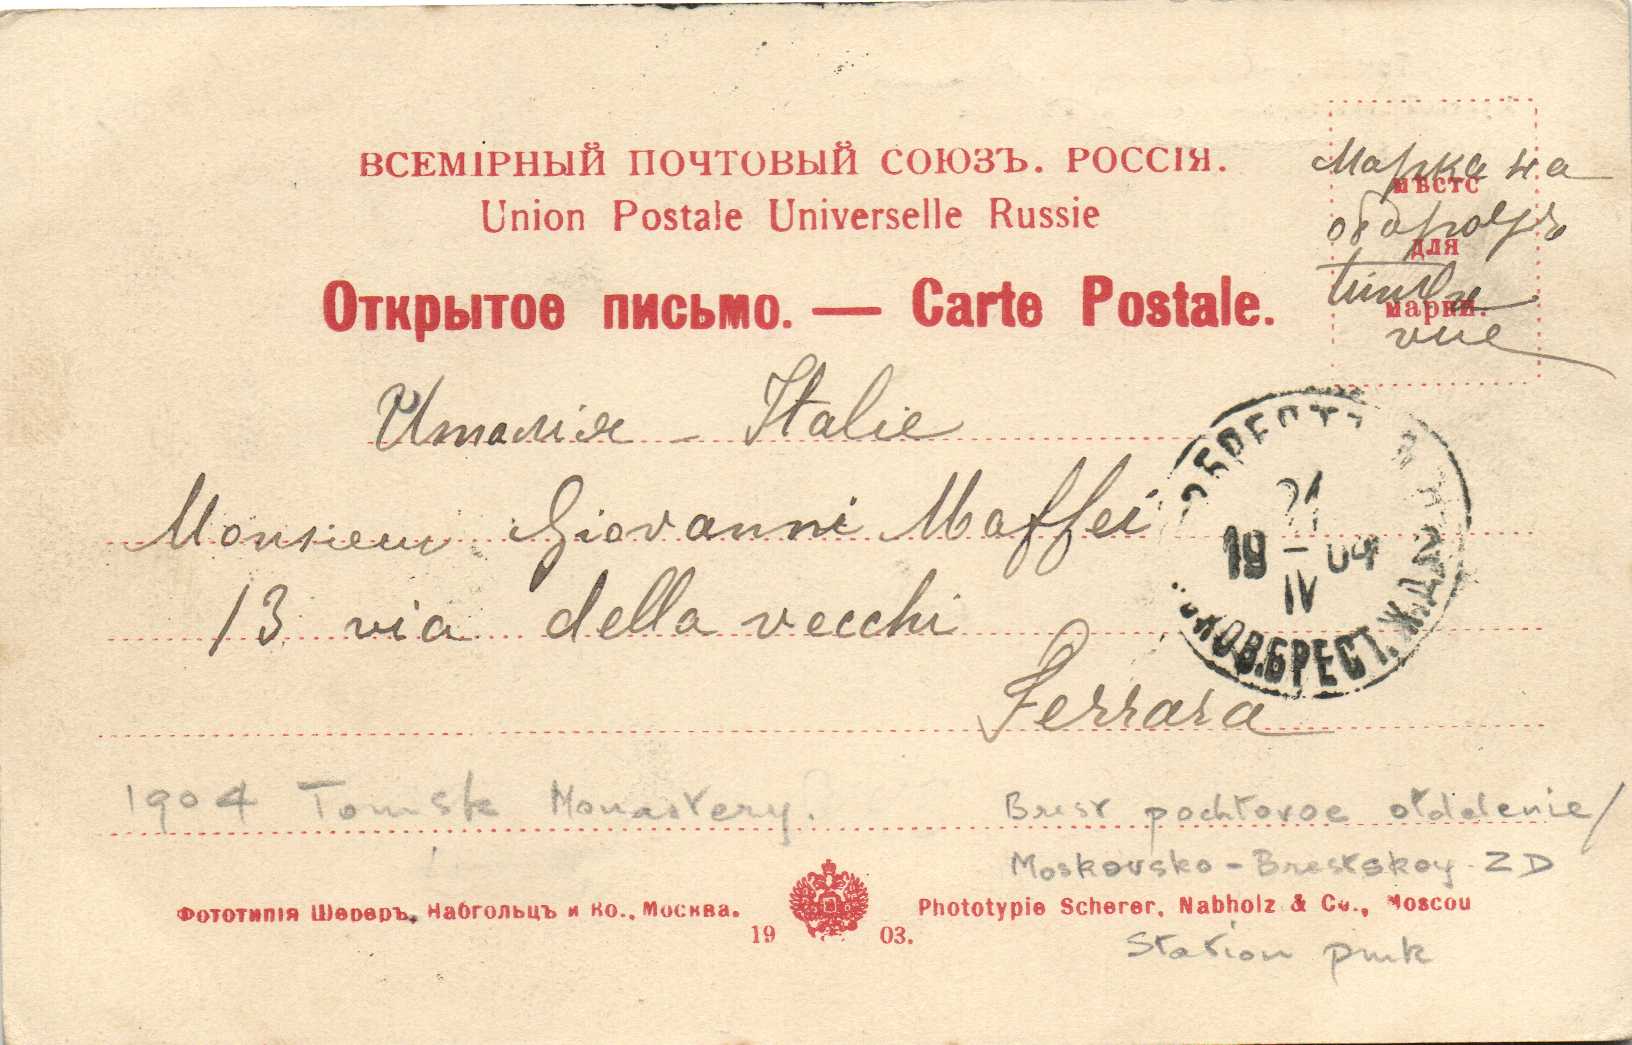 ВСЕМІРНЫЙ ПОЧТОВЫЙ СОЮЗЪ. РОССІЯ.
Union Postale Universelle Russie
Открытое письмо. — Carte Postale.
мѣсто
для
марки.
Марка на
оборотѣ
timbre
vue
Италія - Italie
Monsieur Giovanni Maffei
13 via della vecchi
Ferrara
БРЕСТЪ
21
19 - 04
IV
КОВ.БРЕСТ.Ж.Д.
1904 Tomsk Monastery.
Brest pochtovoe otdelenie/
Moskovsko-Brestskoy ZD
Station pmk
Фототипія Шереръ, Набгольцъ и Ко., Москва.
19 03.
Phototypie Scherer, Nabholz & Co., Moscou